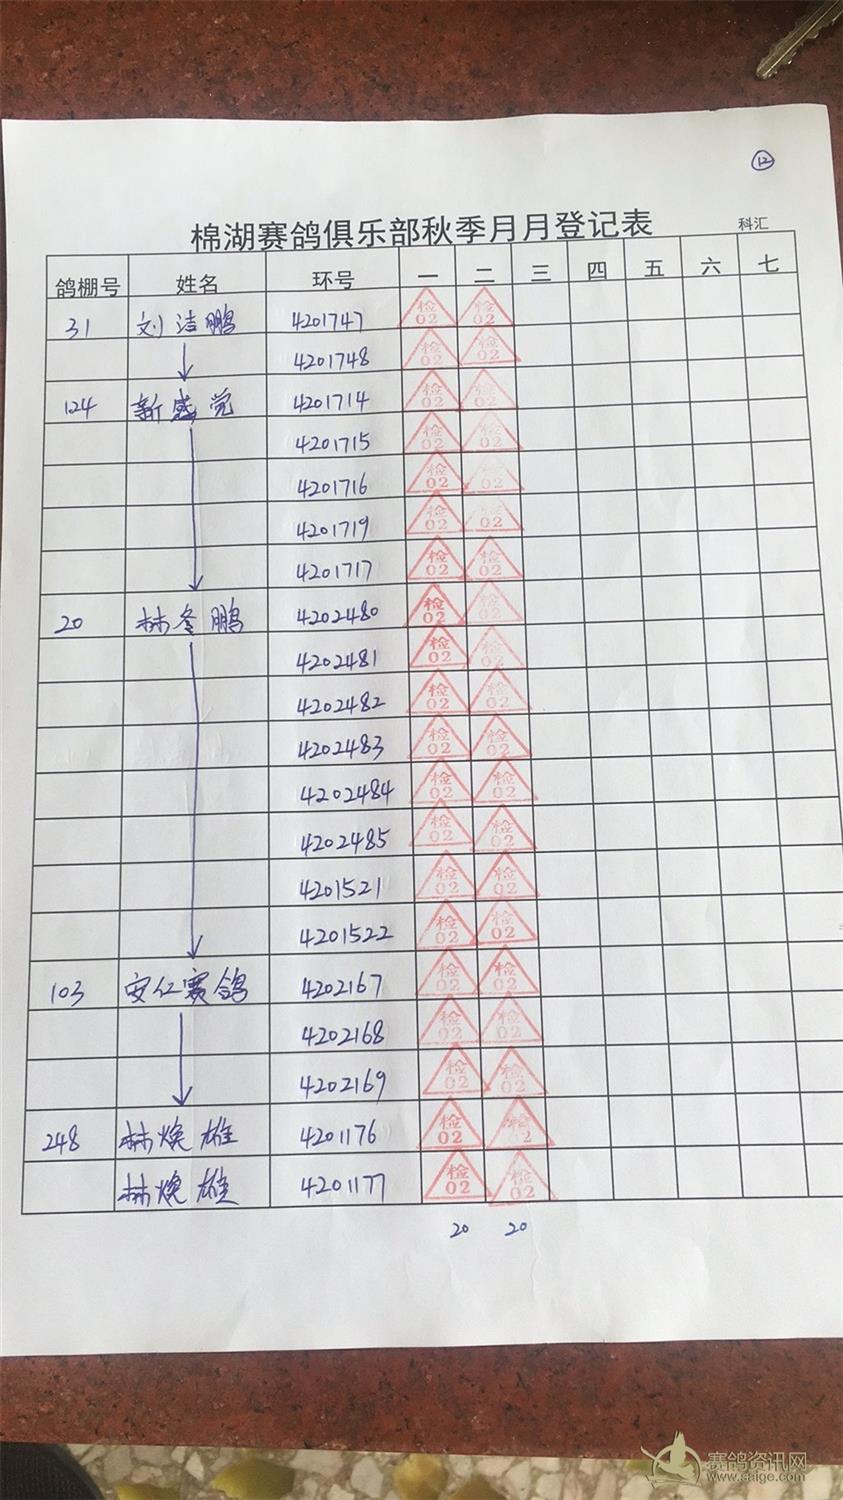 12
棉湖赛鸽俱乐部秋季月月登记表
科汇
鸽棚号 姓名 环号 一 二 三 四 五 六 七
31 刘洁鹏 4201747 检02 检02
4201748 检02 检02
124 新感觉 4201714 检02 检02
4201715 检02 检02
4201716 检02 检02
4201719 检02 检02
4201717 检02 检02
20 林冬鹏 4202480 检02 检02
4202481 检02 检02
4202482 检02 检02
4202483 检02 检02
4202484 检02 检02
4202485 检02 检02
4201521 检02 检02
4201522 检02 检02
103 安仁赛鸽 4202167 检02 检02
4202168 检02 检02
4202169 检02 检02
248 林焕雄 4201176 检02 检2
林焕雄 4201177 检02 检02
20 20
赛鸽资讯网
www.saige.com